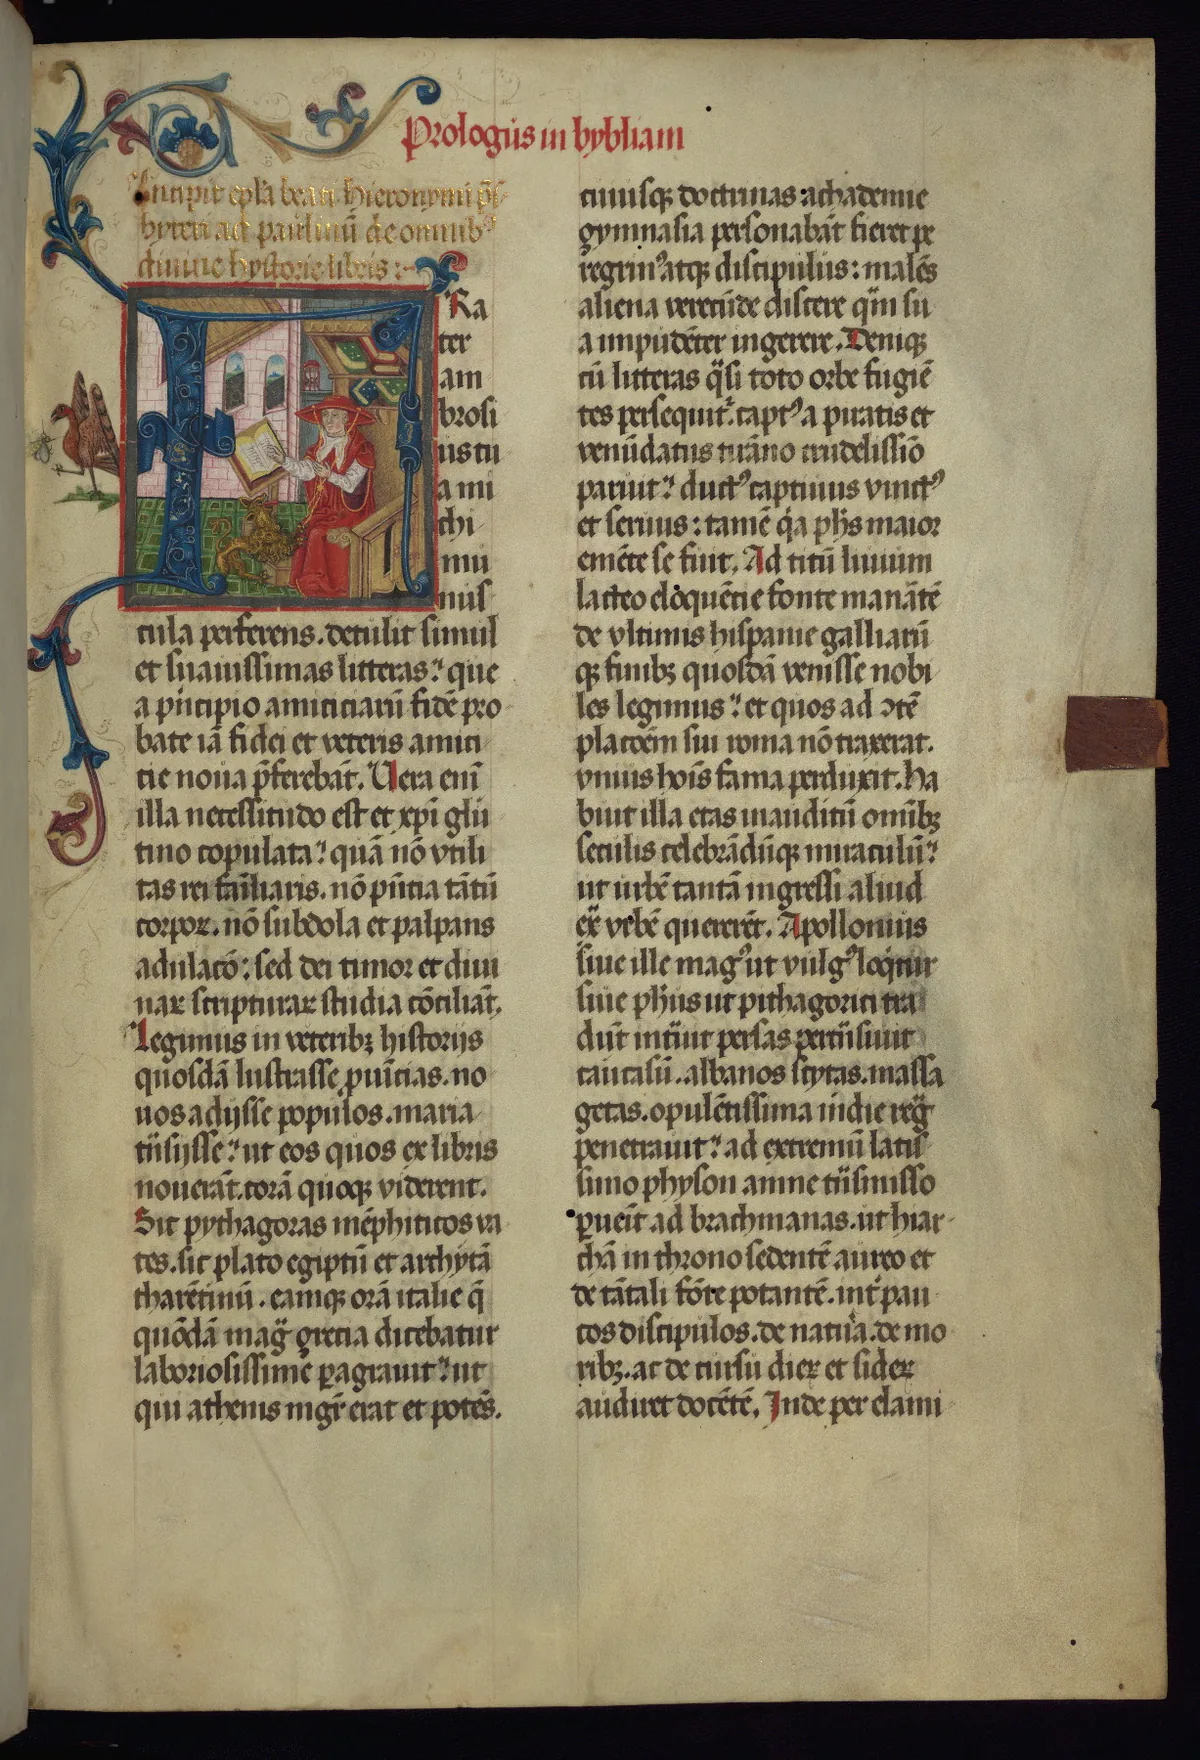 Prologus in bybliam
Incipit ep̅la beati Hieronymi p̅s
byteri ad paulinū de omnibꝰ
diuine hystorie libris :~
FRa
ter
am
brosi
us tu
a mi
chi
mu
nus
cula perferens. detulit simul
et suauissimas litteras: que
a principio amiciciarū fidē pro
bate iā fidei et veteris amici
cie noua p̄ferebāt. Uera enī
illa necessitudo est et xp̄i glu
tino copulata: quā nō vtili
tas rei familiaris. nō pn̄cia tātū
corpoꝝ. nō subdola et palpans
adulacō: sed dei timor et diui
naꝝ scripturaꝝ studia cōciliāt.
Legimus in veteribꝫ historijs
quosdā lustrasse ꝓuīcias. no
uos adijsse populos. maria
tn̄sijsse: ut eos quos ex libris
nouerāt. corā quoqꝫ viderent.
Sic pythagoras mēphiticos va
tes. sic plato egiptū et archytā
tharētinū. eamqꝫ orā italie q̄
quōdā mag̈ grecia dicebatur
laboriosissime ꝑagrauit: ut
qui athenis mgr̄ erat et potēs.
cuiusqꝫ doctrinas achademie
gymnasia personabāt fieret pe
regrinꝰ atqꝫ discipulus: malēs
aliena verecūde discere q̈m su
a impudēter ingerere. Deniqꝫ
cū litteras q̈si toto orbe fugiē
tes persequit᷑. captꝰ a piratis et
venūdatus tirāno crudelissīo
paruit: ductꝰ captiuus vinctꝰ
et seruus: tamē q̇a ph̄s maior
emēte se fuit. Ad titū liuium
lacteo eloquēcie fonte manātē
de vltimis hispanie galliarū
qꝫ finibꝫ quosdā venisse nobi
les legimus: et quos ad ↄtē
placōem sui roma nō traxerat.
vnius hoīs fama perduxit. Ha
buit illa etas inauditū omībꝫ
seculis celebrādūqꝫ miraculū:
ut urbē tantā ingressi aliud
ex̄ vrbē quererēt. Apollonius
siue ille magꝰ ut vulgꝰ loq̇tur
siue ph̄us ut pithagorici tra
dūt intͣuit persas pertn̄siuit
caucasū. albanos scytas. massa
getas. opulētissima indie reg̈
penetrauit: ad extremū latis
simo physon amne tn̄smisso
ꝑuēit ad brachmanas. ut hiar
chā in throno sedentē aureo et
de tātali fōte potantē. int᷑ pau
cos discipulos. de natura. de mo
ribꝫ. ac de cursu dieꝝ et sideꝝ
audiret docētē. Inde per elami